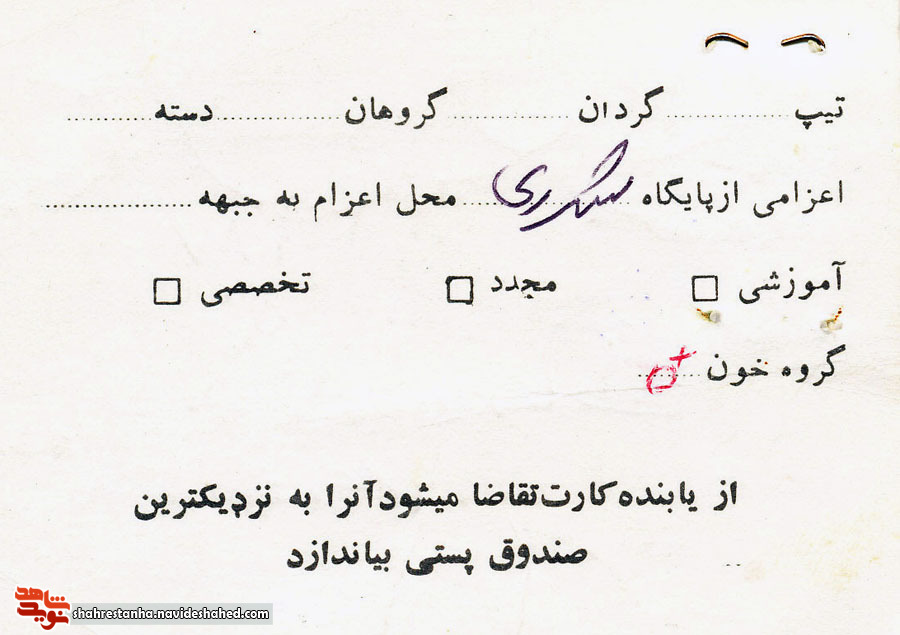 تیپ .................... گردان .................... گروهان .................... دسته ....................
اعزامی از پایگاه .................... محل اعزام به جبهه ....................
آموزشی □ مجدد □ تخصصی □
گروه خون O+
از یابنده کارت تقاضا میشود آنرا به نزدیکترین
صندوق پستی بیاندازد
نوید شاهد
shahrestanha.navideshahed.com